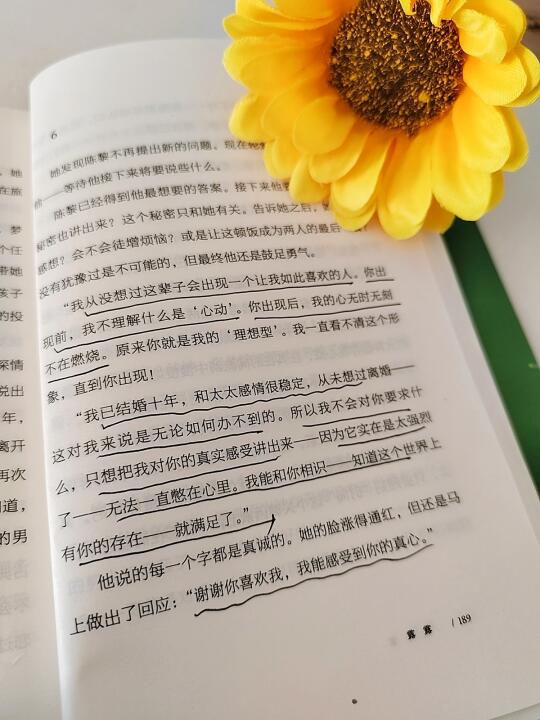 ，她
在旅
梦
个任
带她
孩子
的投
深情
说出
年，
离开
再次
知道，
的男
6
她发现陈黎不再提出新的问题。现在轮
——等待他接下来将要说些什么。
陈黎已经得到他最想要的答案。接下来他
秘密也讲出来？这个秘密只和她有关。告诉她之后，
感想？会不会徒增烦恼？或是让这顿饭成为两人的最后
没有犹豫过是不可能的，但最终他还是鼓足勇气。
“我从没想过这辈子会出现一个让我如此喜欢的人。你出
现前，我不理解什么是‘心动’。你出现后，我的心无时无刻
不在燃烧。原来你就是我的‘理想型’。我一直看不清这个形
象，直到你出现！
“我已结婚十年，和太太感情很稳定，从未想过离婚——
这对我来说是无论如何办不到的。所以我不会对你要求什
么，只想把我对你的真实感受讲出来——因为它实在是太强烈
了——无法一直憋在心里。我能和你相识——知道这个世界上
有你的存在——就满足了。”
他说的每一个字都是真诚的。她的脸涨得通红，但还是马
上做出了回应：“谢谢你喜欢我，我能感受到你的真心。”
露露 / 189